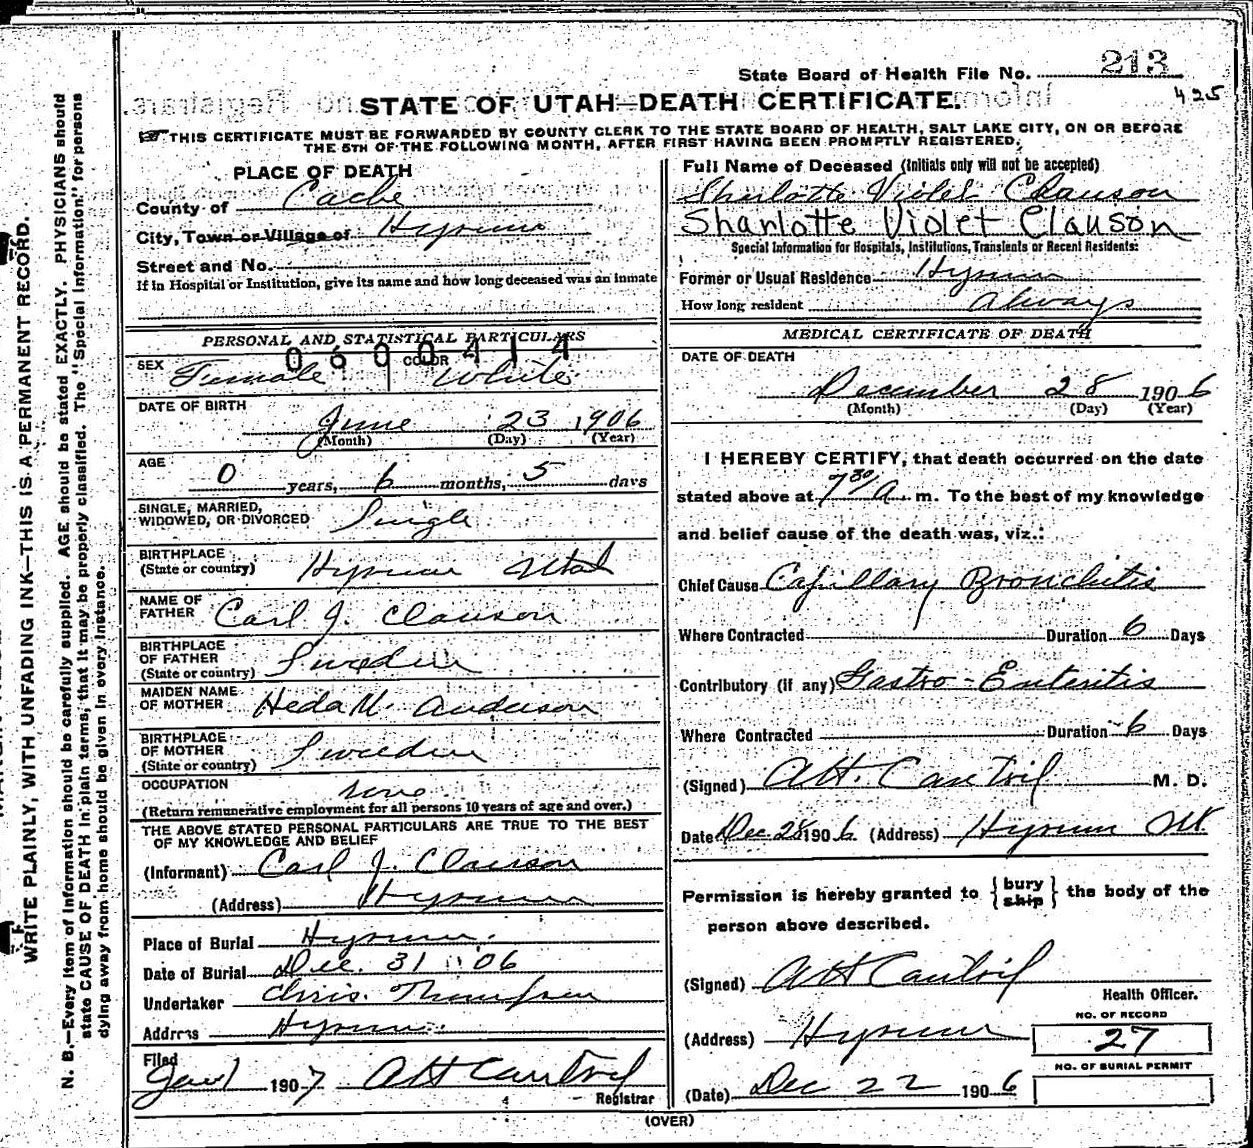 213
State Board of Health File No.
425
STATE OF UTAH—DEATH CERTIFICATE.
THIS CERTIFICATE MUST BE FORWARDED BY COUNTY CLERK TO THE STATE BOARD OF HEALTH, SALT LAKE CITY, ON OR BEFORE
THE 5TH OF THE FOLLOWING MONTH, AFTER FIRST HAVING BEEN PROMPTLY REGISTERED.
WRITE PLAINLY, WITH UNFADING INK—THIS IS A PERMANENT RECORD.
N. B.—Every item of information should be carefully supplied. AGE should be stated EXACTLY. PHYSICIANS should
state CAUSE OF DEATH in plain terms, that it may be properly classified. The "Special Information" for persons
dying away from home should be given in every instance.
PLACE OF DEATH
County of Cache
City, Town or Village of Hyrum
Street and No.
If in Hospital or Institution, give its name and how long deceased was an inmate
PERSONAL AND STATISTICAL PARTICULARS
0600414
SEX Female COLOR White
DATE OF BIRTH
June 23 1906
(Month) (Day) (Year)
AGE
0 years, 6 months, 5 days
SINGLE, MARRIED,
WIDOWED, OR DIVORCED Single
BIRTHPLACE
(State or country) Hyrum Utah
NAME OF
FATHER Carl J. Clauson
BIRTHPLACE
OF FATHER
(State or country) Sweden
MAIDEN NAME
OF MOTHER Heda M. Anderson
BIRTHPLACE
OF MOTHER
(State or country) Sweeden
OCCUPATION none
(Return remunerative employment for all persons 10 years of age and over.)
THE ABOVE STATED PERSONAL PARTICULARS ARE TRUE TO THE BEST
OF MY KNOWLEDGE AND BELIEF
(Informant) Carl J. Clauson
(Address) Hyrum
Place of Burial Hyrum.
Date of Burial Dec. 31 " 06
Undertaker Chris. Thompson
Address Hyrum.
Filed
Jan 1 1907 AH Cantril
Registrar
Full Name of Deceased (Initials only will not be accepted)
Sharlotte Violet Clauson
Sharlotte Violet Clauson
Special Information for Hospitals, Institutions, Transients or Recent Residents:
Former or Usual Residence Hyrum
How long resident always
MEDICAL CERTIFICATE OF DEATH
DATE OF DEATH
December 28 1906
(Month) (Day) (Year)
I HEREBY CERTIFY, that death occurred on the date
stated above at 7 30/A. m. To the best of my knowledge
and belief cause of the death was, viz.:
Chief Cause Capillary Bronchitis
Where Contracted Duration 6 Days
Contributory (if any) Gastro-Enteritis
Where Contracted Duration 6 Days
(Signed) AH. Cantril M. D.
Date Dec 28 1906. (Address) Hyrum Ut
Permission is hereby granted to { bury ship } the body of the
person above described.
(Signed) AH Cantril
Health Officer.
(Address) Hyrum
NO. OF RECORD
27
NO. OF BURIAL PERMIT
(Date) Dec 22 1906
(OVER)